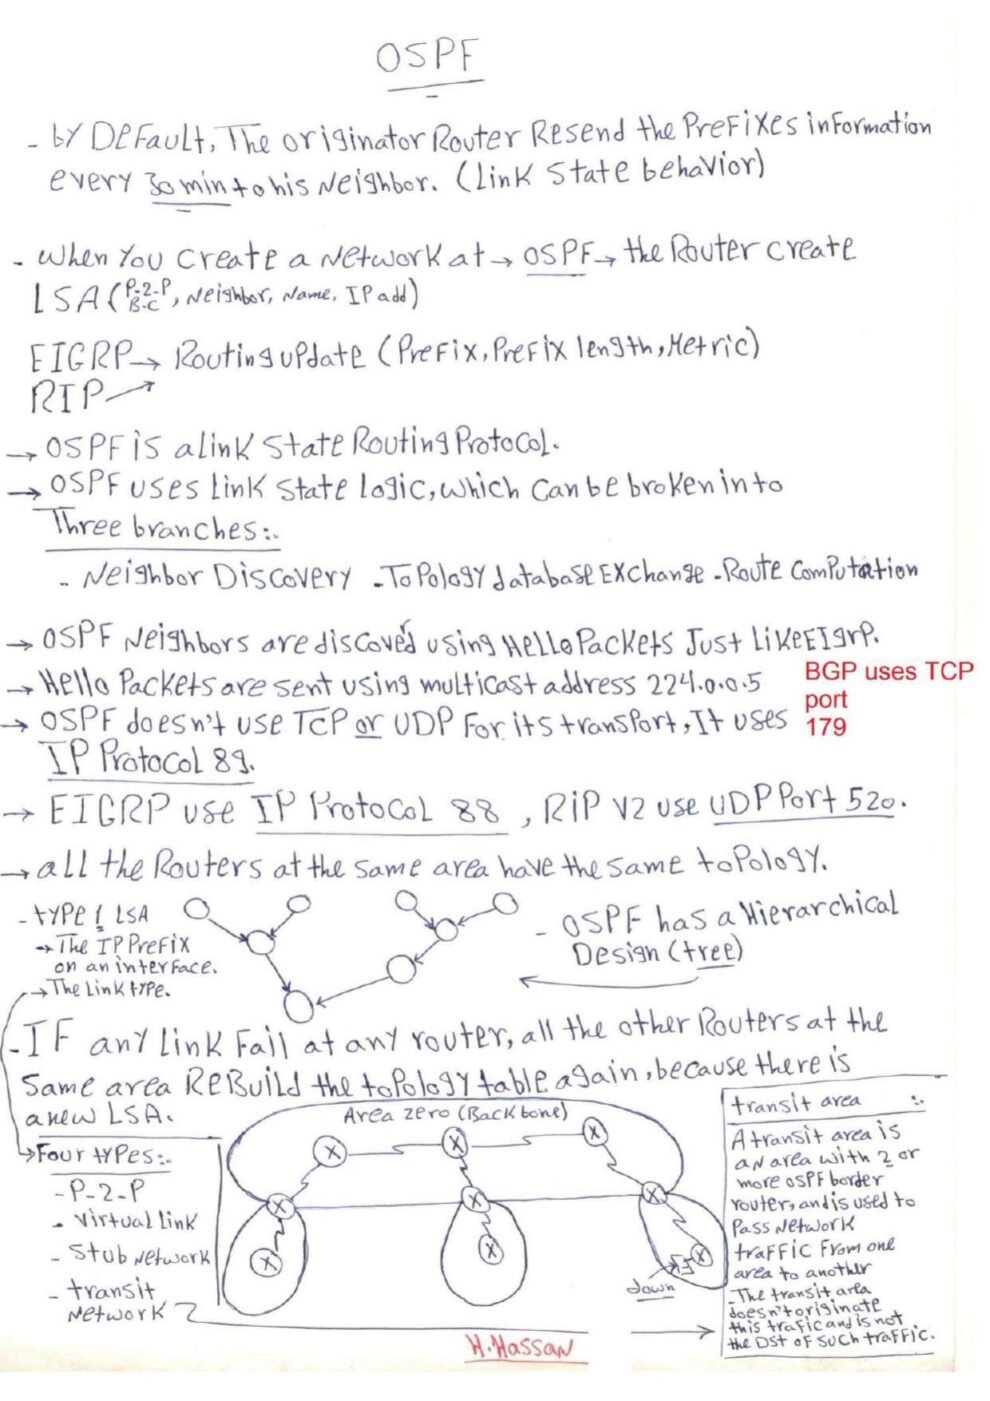 OSPF
- by Default, The originator Router Resend the Prefixes information
every 30 min to his Neighbor. (Link State behavior)
- When You create a Network at → OSPF → the Router create
LSA (P-2-P B-C, Neighbor, Name, IP add)
EIGRP → Routing update (Prefix, Prefix length, Metric)
RIP
→ OSPF is a link State Routing Protocol.
→ OSPF uses Link state logic, which can be broken into
Three branches:.
- Neighbor Discovery - Topology database Exchange - Route Computation
→ OSPF Neighbors are discoved using Hello Packets Just like EIgrp.
→ Hello Packets are sent using multicast address 224.0.0.5
BGP uses TCP
port
179
→ OSPF doesn't use TCP or UDP For its transport, It uses
IP Protocol 89.
→ EIGRP use IP Protocol 88 , RIP V2 use UDP Port 520.
→ all the Routers at the same area have the same topology.
- type 1 LSA
→ The IP Prefix
on an interface.
→ The Link type.
- OSPF has a Hierarchical
Design (tree)
- IF any link Fail at any router, all the other Routers at the
Same area ReBuild the topology table again, because there is
a new LSA.
Area zero (Backbone)
→ Four types:.
- P-2-P
- virtual link
- Stub Network
- transit
Network
down
transit area :.
A transit area is
an area with 2 or
more OSPF border
router, and is used to
Pass Network
traffic From one
area to another
- The transit area
doesn't originate
this trafic and is not
the DST of such traffic.
H.Hassan